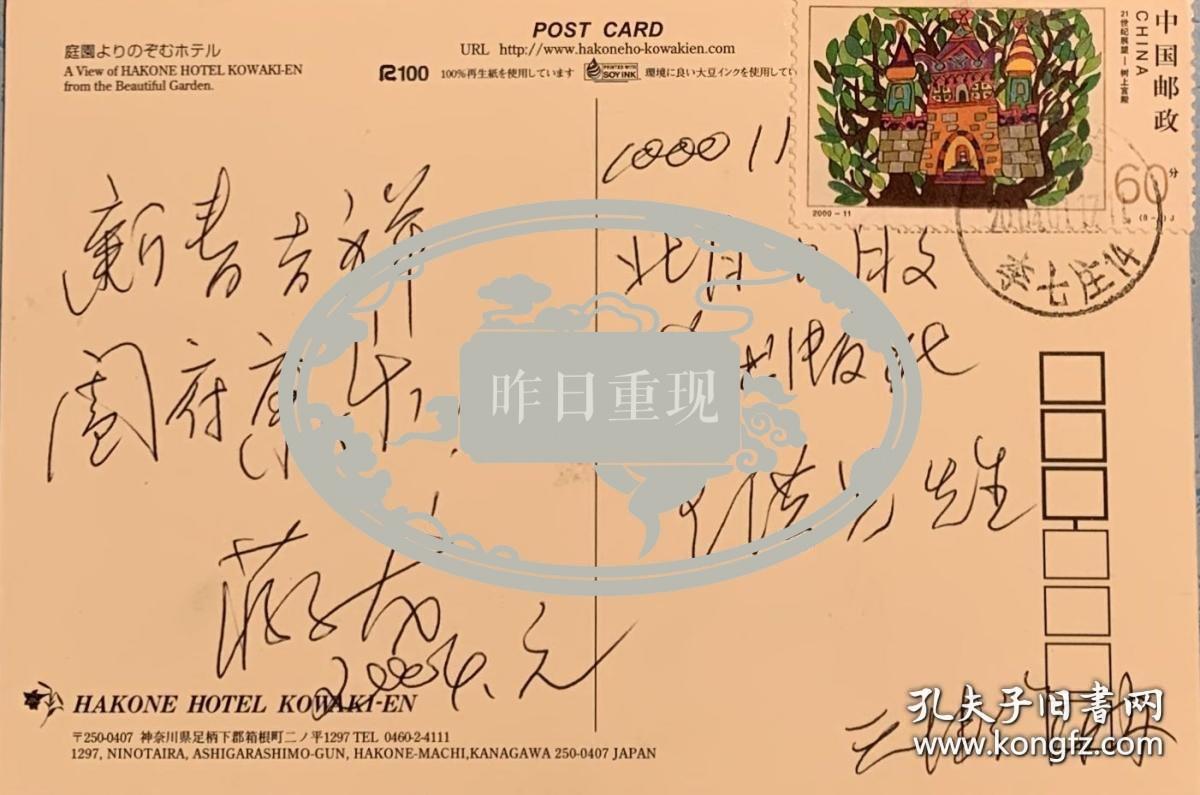 庭園よりのぞむホテル
A View of HAKONE HOTEL KOWAKI-EN
from the Beautiful Garden.
POST CARD
URL http://www.hakoneho-kowakien.com
R100 100%再生紙を使用しています PRINTED WITH SOY INK 環境に良い大豆インクを使用してい
中国邮政
CHINA
21世纪展望—树上宫殿
60分
2000-11
(8-)J
100011
新春吉祥
阖府康乐
2004.元
北
出版社
先生
昨日重现
HAKONE HOTEL KOWAKI-EN
〒250-0407 神奈川県足柄下郡箱根町二ノ平1297 TEL 0460-2-4111
1297, NINOTAIRA, ASHIGARASHIMO-GUN, HAKONE-MACHI,KANAGAWA 250-0407 JAPAN
孔夫子旧书网
www.kongfz.com